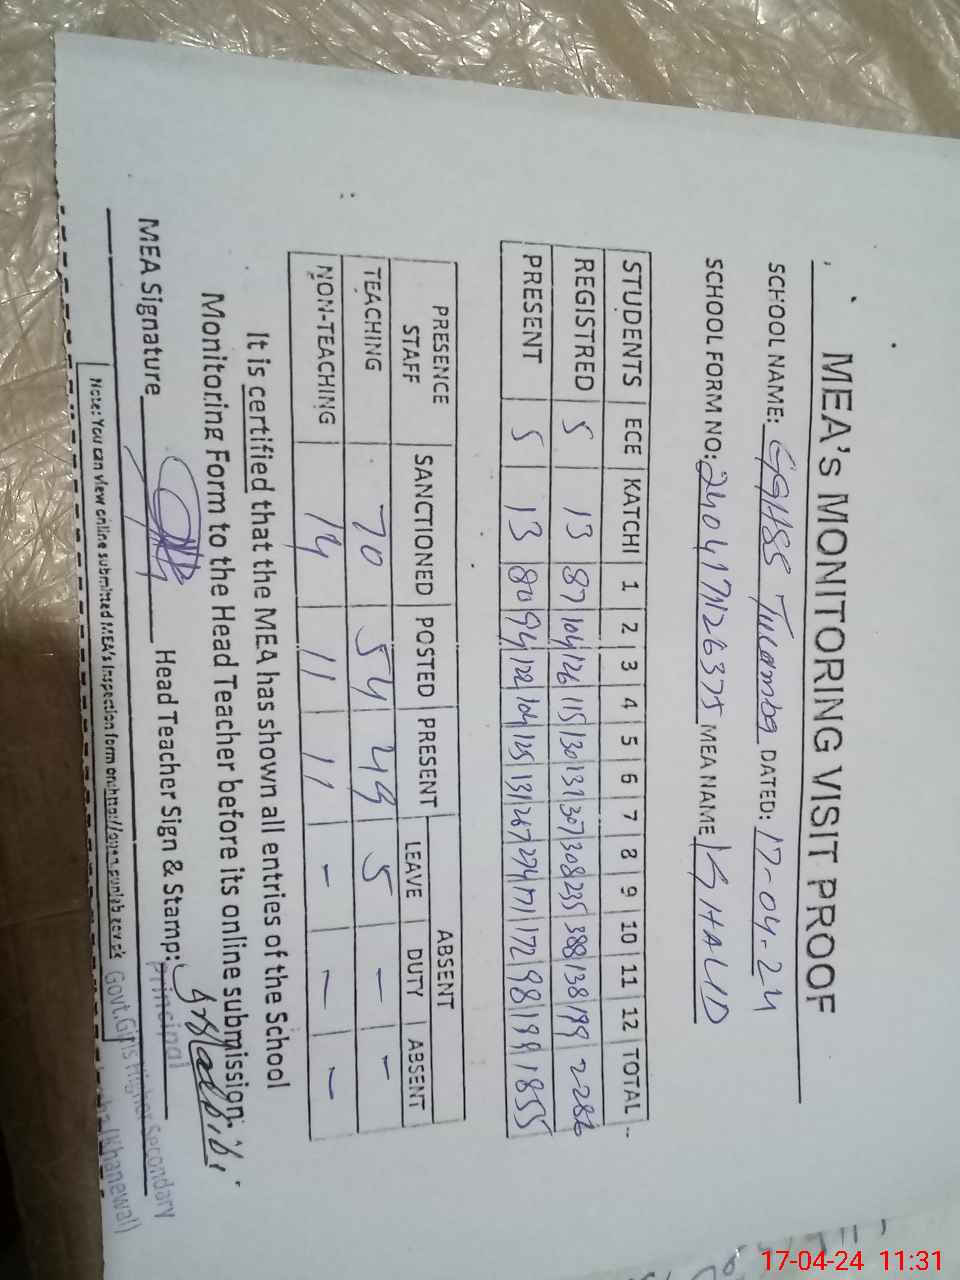 MEA's MONITORING VISIT PROOF
SCHOOL NAME: GGHSS Tulamba DATED: 17-04-24
SCHOOL FORM NO: 240417126375 MEA NAME KHALID
STUDENTS ECE KATCHI 1 2 3 4 5 6 7 8 9 10 11 12 TOTAL
REGISTRED 5 13 87 104 126 115 130 137 307 308 235 388 138 199 2286
PRESENT 5 13 80 94 122 104 125 131 267 274 171 172 98 199 1855
PRESENCE STAFF SANCTIONED POSTED PRESENT ABSENT
LEAVE DUTY ABSENT
TEACHING 70 54 49 5 - -
NON-TEACHING 14 11 11 - - -
It is certified that the MEA has shown all entries of the School
Monitoring Form to the Head Teacher before its online submission.
MEA Signature Head Teacher Sign & Stamp:
Principal
Govt.Girls Higher Secondary
(Khanewal)
Note: You can view online submitted MEA's Inspection form on:http://open.punjab.gov.pk
17-04-24 11:31